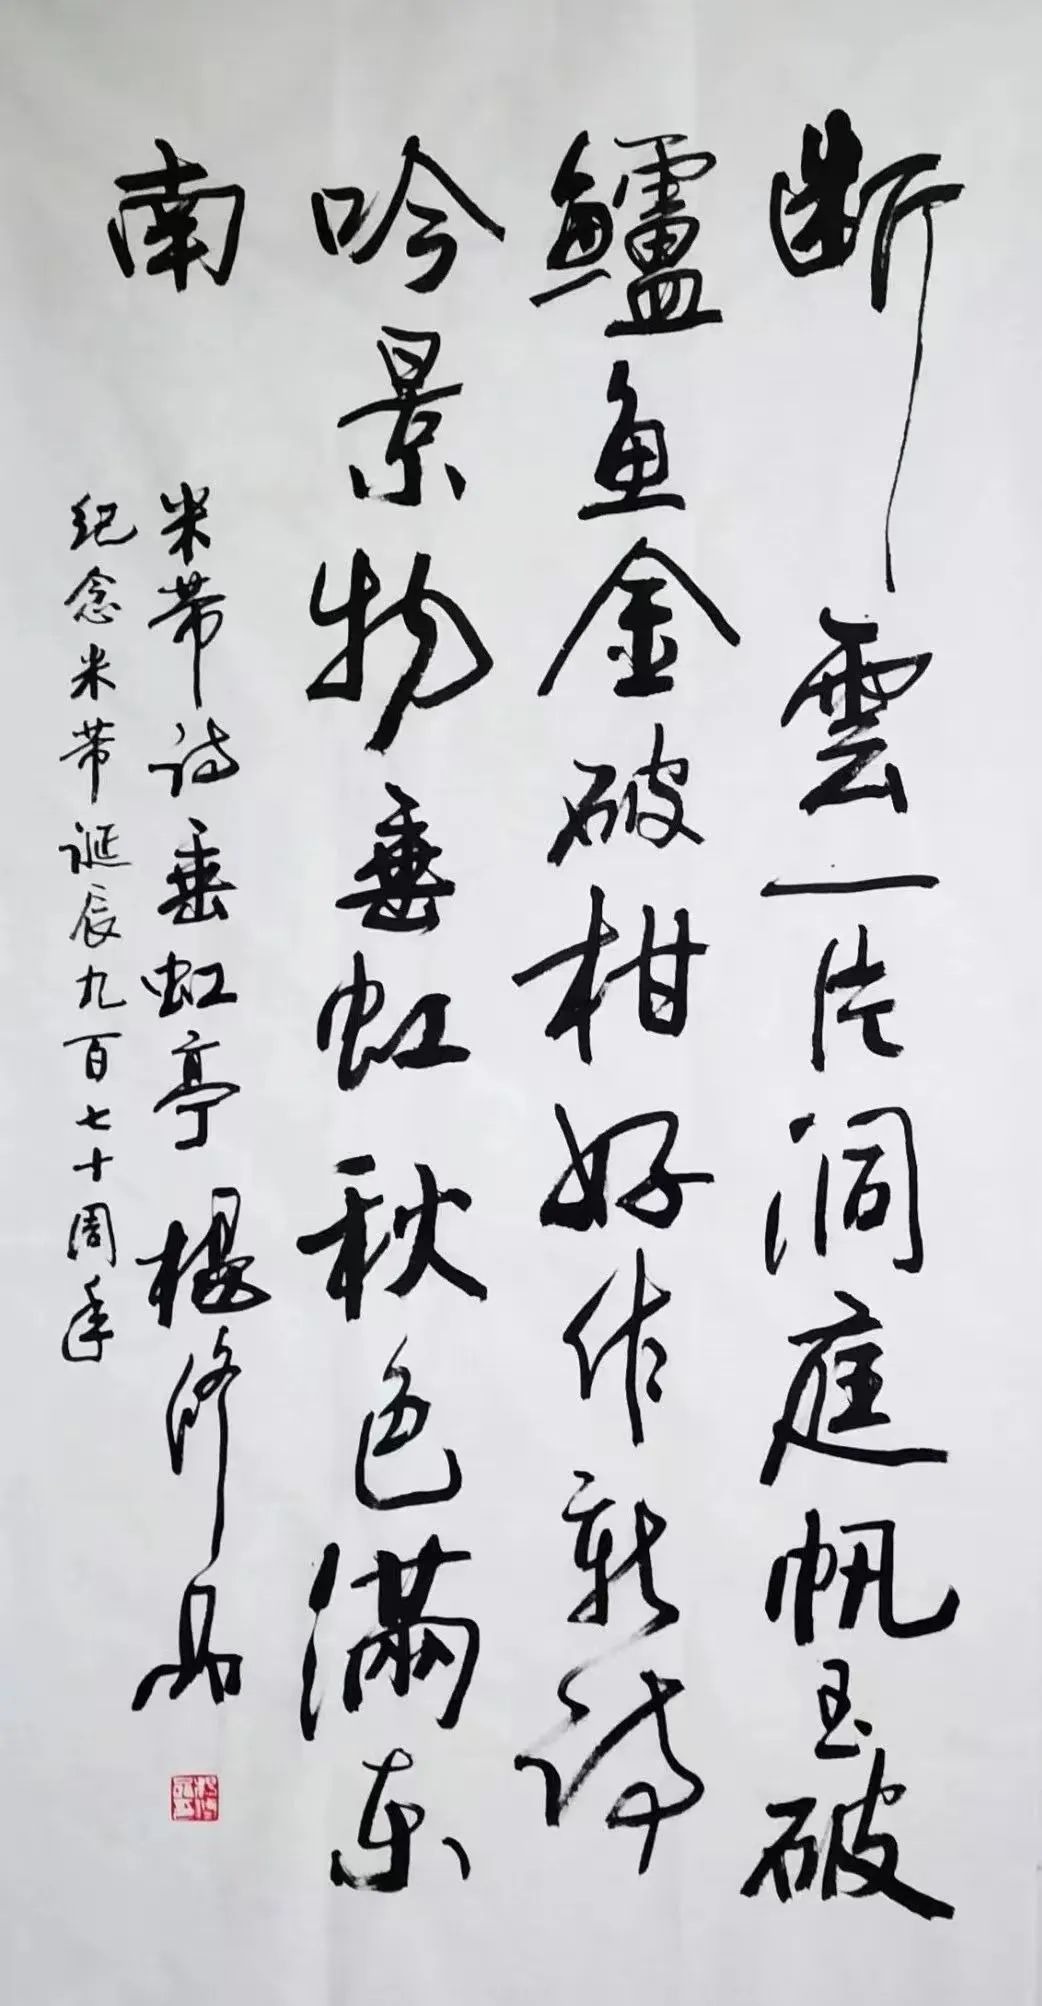 断雲一片洞庭帆玉破
鱸魚金破柑好作新詩
吟景物垂虹秋色满东
南
米芾诗垂虹亭 楊修品
纪念米芾诞辰九百七十周年